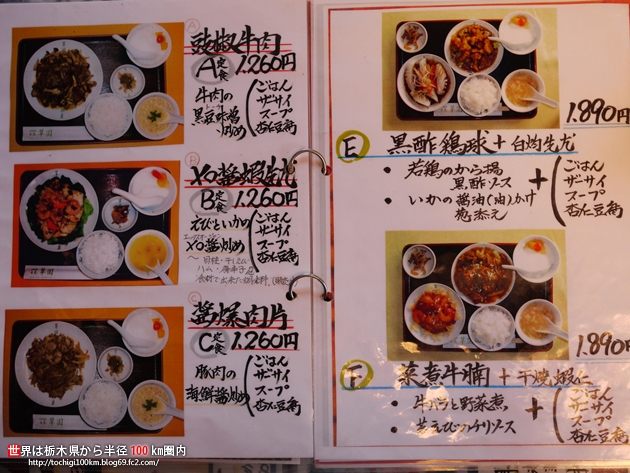 A
豉椒牛肉
A定食 1,260円
牛肉の
黒豆味噌
炒め
ごはん
ザーサイ
スープ
杏仁豆腐
B
XO醤蝦先尤
B定食 1,260円
えびといかの
XO醤炒め
ごはん
ザーサイ
スープ
杏仁豆腐
C
醤爆肉片
C定食 1,260円
豚肉の
海鮮醤炒め
ごはん
ザーサイ
スープ
杏仁豆腐
1,890円
E 黒酢鶏球+白灼先尤
• 若鶏のから揚
黒酢ソース
• いかの醤油(油)かけ
葱添え
+
ごはん
ザーサイ
スープ
杏仁豆腐
1,890円
F 菜煮牛腩+干焼蝦仁
• 牛バラと野菜煮
• 芝えびのチリソース
+
ごはん
ザーサイ
スープ
杏仁豆腐
世界は栃木県から半径100km圏内
http://tochigi100km.blog69.fc2.com/